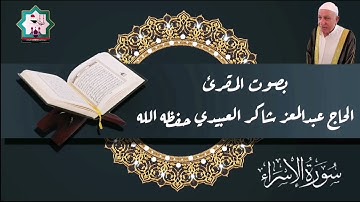 بصوت المقرئ
الحاج عبدالمعز شاكر العبيدي حفظه الله
سُورَةُ الإِسْرَاء